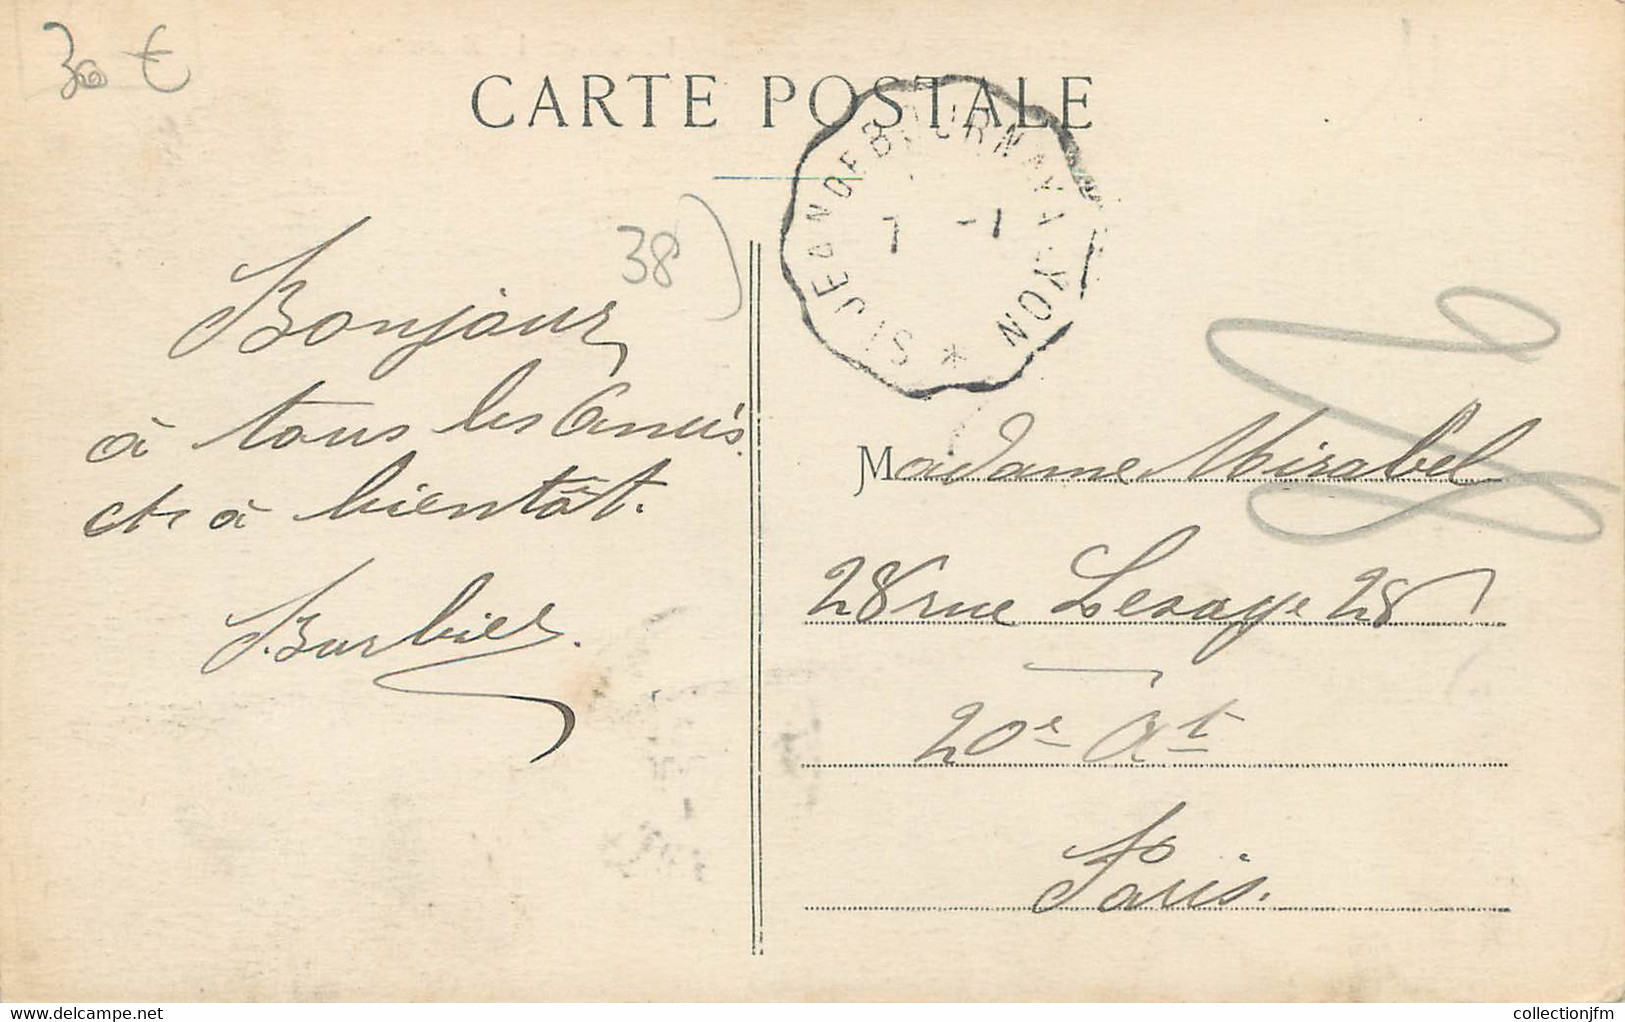 30 €
CARTE POSTALE
ST JEAN DE BOURNAY A LYON *
7 -1
38)
Bonjour
à tous les Amis
et à bientôt.
Barbier.
Madame Mirabel
28 rue Lesage 28
20e At
Paris.
delcampe.net
collectionjfm